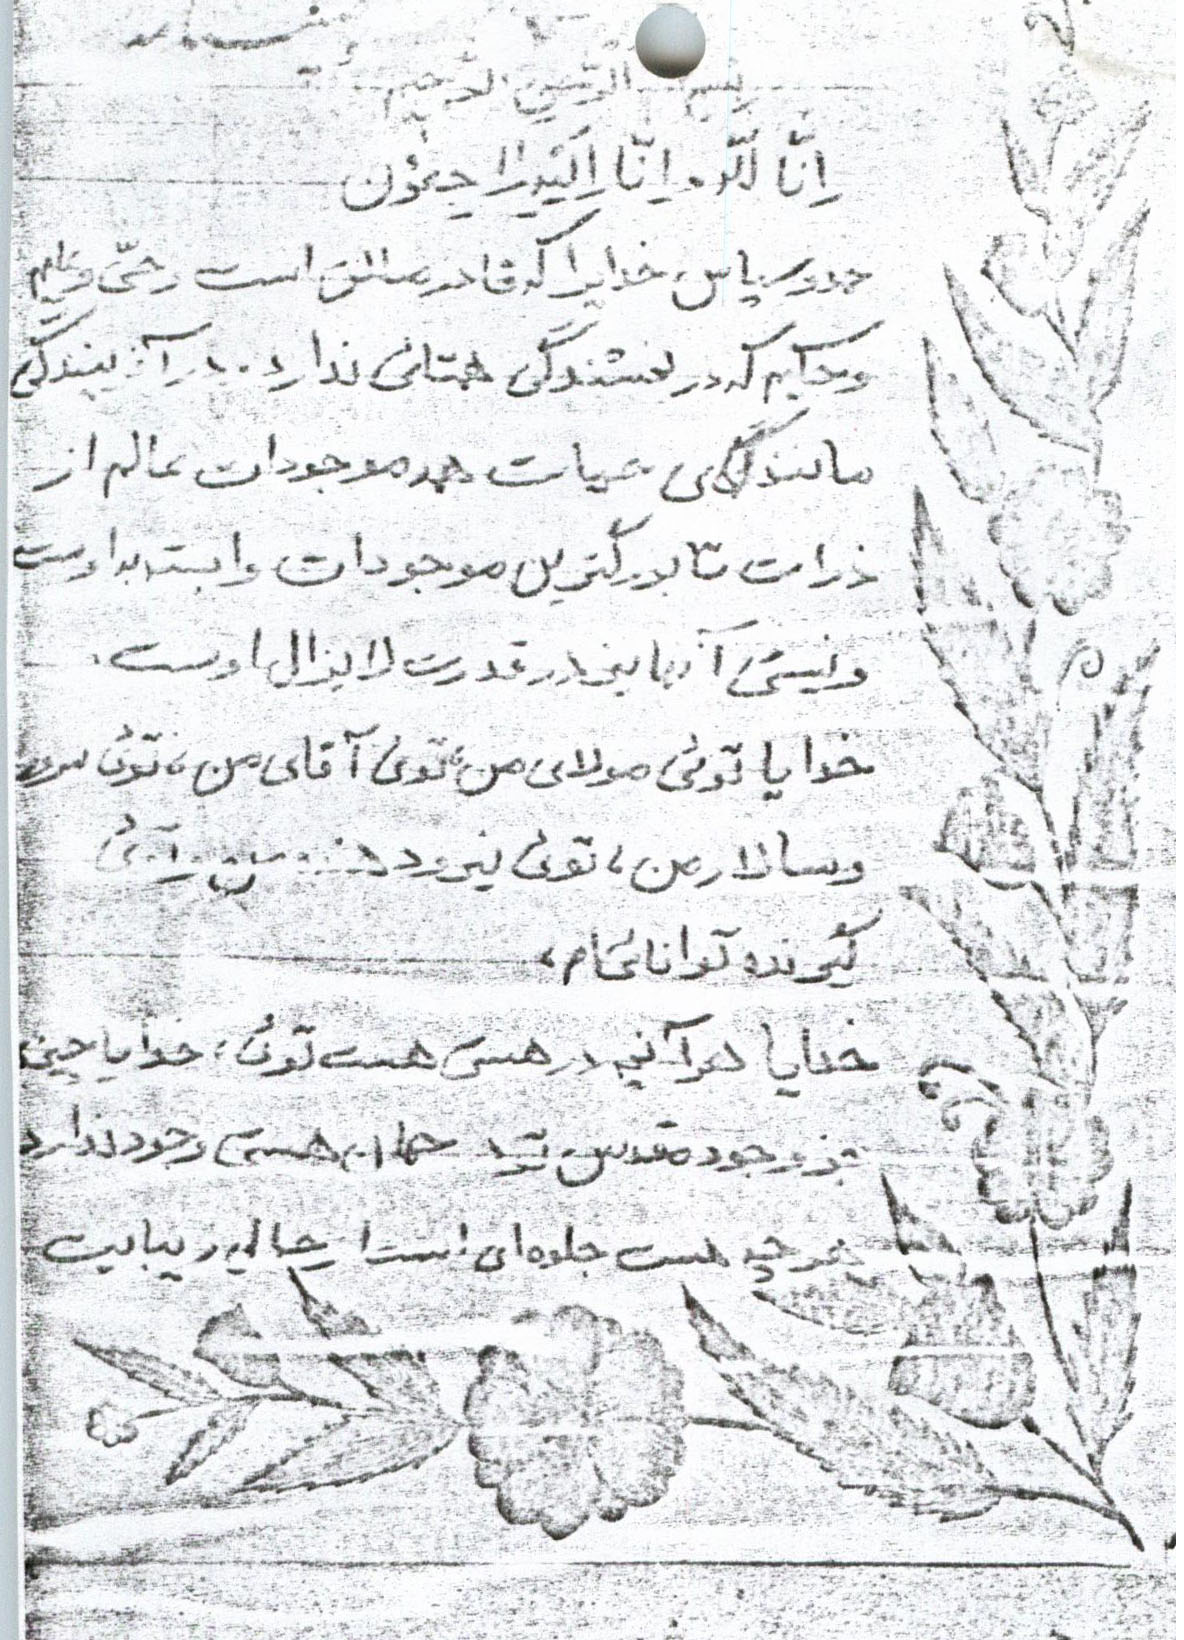 بسم الرحمن الرحیم
اِنّا للّه و اِنّا اِلَیهِ راجِعُون
حمد و سپاس خدایرا که قادر مطلق است و حیّ و علیم
و حکیم که در بخشندگی همتائی ندارد. در آفرینندگی
حیات همه موجودات عالم از
ذرات تا بزرگترین موجودات وابسته به اوست
و نیستی آنها نیز در قدرت لایزال اوست.
خدایا توئی مولای من، توئی آقای من، توئی سرور
و سالار من، توئی نیرو دهنده من و توئی
گیرنده توانائی‌ام،
خدایا هر آنچه در هستی هست توئی، خدایا چیزی
جز وجود مقدس تو در جهان هستی وجود ندارد
هر چه هست جلوه‌ای است از جمال زیبایت